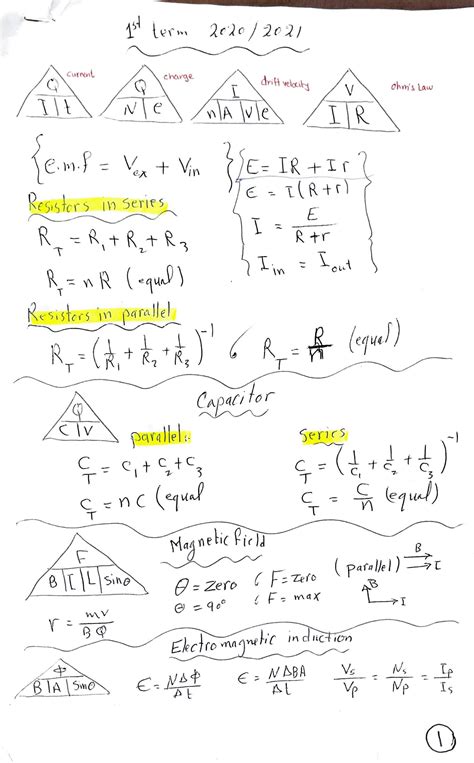 1st term 2020/2021
Q current
I t
Q charge
N e
I drift velocity
n A v e
V ohm's Law
I R
{e.m.f = Vex + Vin
E = IR + Ir
ϵ = I(R+r)
I = E / R+r
Iin = Iout
Resistors in series
RT = R1 + R2 + R3
RT = nR (equal)
Resistors in parallel
RT = (1/R1 + 1/R2 + 1/R3)^-1 , RT = R/n (equal)
Capacitor
Q
C V
parallel:
CT = C1 + C2 + C3
CT = nC (equal
series
CT = (1/C1 + 1/C2 + 1/C3)^-1
CT = C/n (equal)
Magnetic field
F
B I L Sinθ
r = mv / BQ
θ = zero , F = zero (parallel) B I
θ = 90° , F = max B I
Electromagnetic induction
Φ
B A Sinθ
ϵ = NΔΦ / Δt
ϵ = NΔBA / Δt
Vs/Vp = Ns/Np = Ip/Is
1